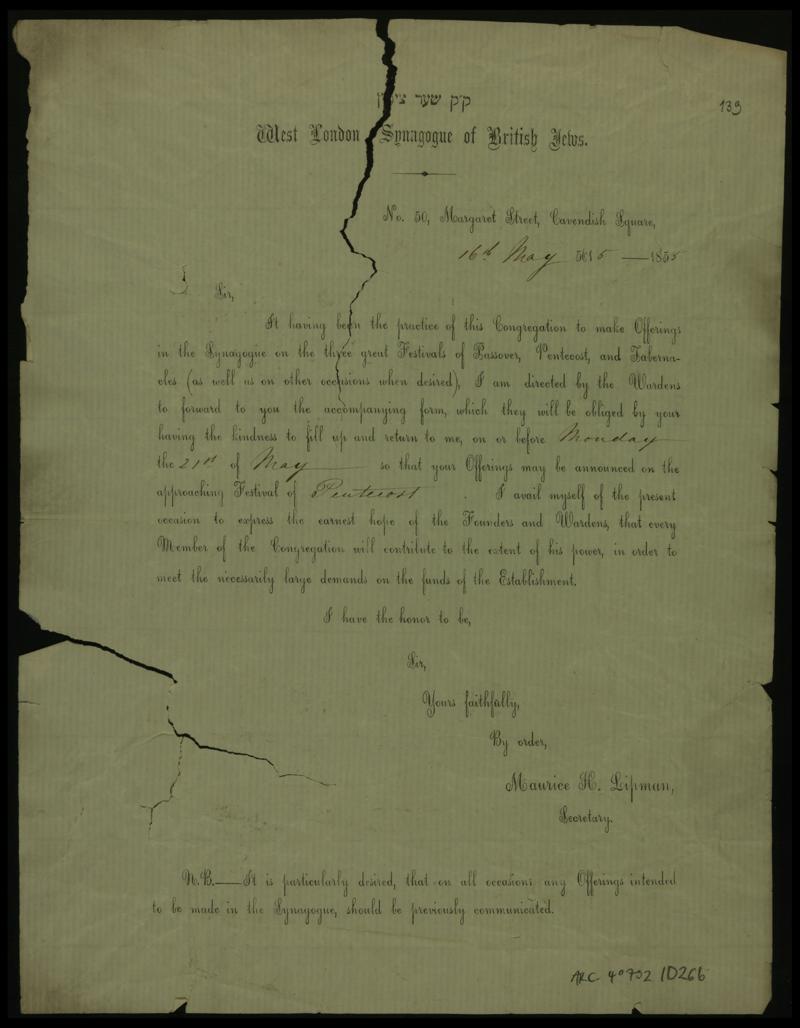 ק״ק שער
139
West London Synagogue of British Jews.
No. 50, Margaret Street, Cavendish Square,
16th May 5615 — 1855
Sir,
It having been the practice of this Congregation to make Offerings
in the Synagogue on the three great Festivals of Passover, Pentecost, and Taberna-
cles (as well as on other occasions when desired), I am directed by the Wardens
to forward to you the accompanying form, which they will be obliged by your
having the kindness to fill up and return to me, on or before Monday
the 21st of May so that your Offerings may be announced on the
approaching Festival of Pentecost . I avail myself of the present
occasion to express the earnest hope of the Founders and Wardens, that every
Member of the Congregation will contribute to the extent of his power, in order to
meet the necessarily large demands on the funds of the Establishment.
I have the honor to be,
Sir,
Yours faithfully,
By order,
Maurice H. Lipman,
Secretary.
N.B.—It is particularly desired, that on all occasions any Offerings intended
to be made in the Synagogue, should be previously communicated.
ARC 4º 792 / D266